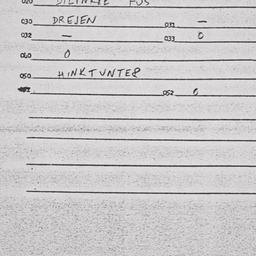 020 FUS
030 DREJEN 031 —
032 — 033 0
040 0
050 HINKTUNTER
052 0